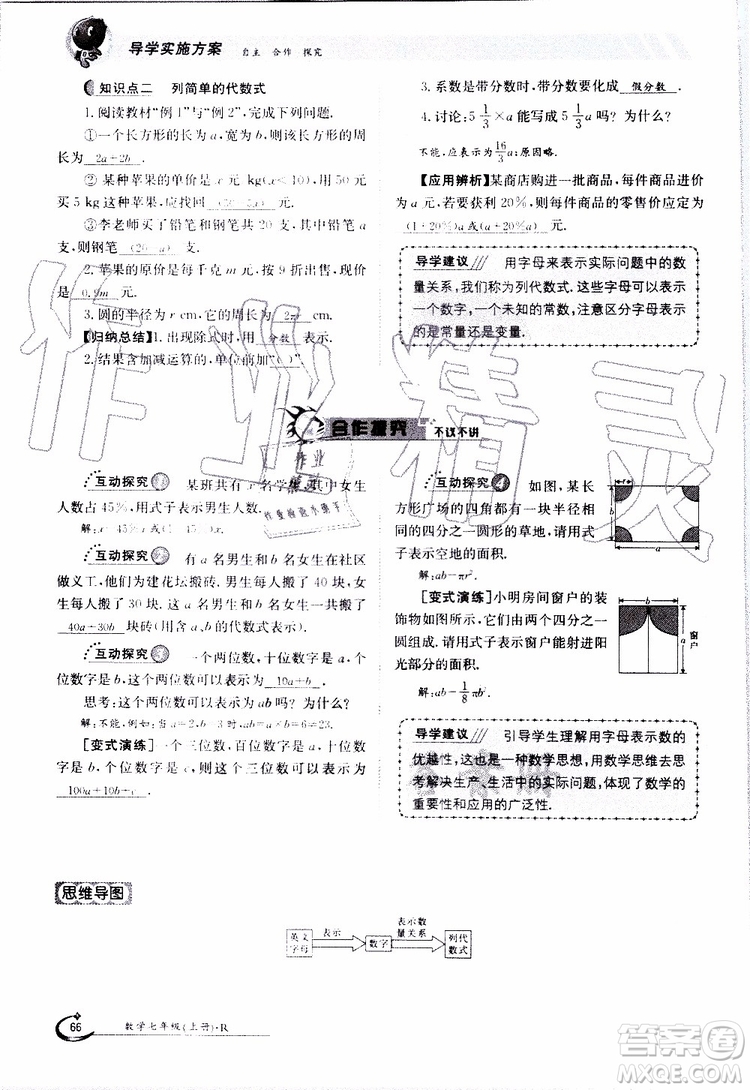 导学实施方案 自主 合作 探究
知识点二 列简单的代数式
1.阅读教材“例1”与“例2”,完成下列问题.
①一个长方形的长为a,宽为b,则该长方形的周
长为 2a+2b .
②某种苹果的单价是x元 kg(x<10),用50元
买5 kg这种苹果,应找回 元.
③李老师买了铅笔和钢笔共20支,其中铅笔a
支,则钢笔 (20-a) 支.
2.苹果的原价是每千克m元,按9折出售,则售价
是 0.9m 元.
3.圆的半径为r cm,它的周长为 2πr cm.
【归纳总结】1.出现除式时,用 分数 表示.
2.结果含加减运算的,单位前加“( )”.
3.系数是带分数时,带分数要化成 假分数 .
4.讨论:5 1/3×a能写成5 1/3 a吗?为什么?
不能,应表示为16/3 a;原因略.
【应用辨析】某商店购进一批商品,每件商品进价
为a元,若要获利20%,则每件商品的零售价应定为
(1+20%)a或(a+20%a) 元.
导学建议 用字母来表示实际问题中的数
量关系,我们称为列代数式.这些字母可以表示已
知的一个数字,一个未知的常数,注意区分字母表示
的是常量还是变量.
合作探究 不议不讲
互动探究1 某班共有x名学生,其中女生
人数占45%,用式子表示男生人数.
解:
互动探究2 有a名男生和b名女生在社区
做义工,他们为建花坛搬砖.男生每人搬了40块,
女生每人搬了30块.这a名男生和b名女生一共搬了
40a+30b 块砖(用含a、b的代数式表示).
互动探究3 一个两位数,十位数字是a,个
位数字是b,则这个两位数可表示为 10a+b .
思考:这个两位数可以表示成ab吗?为什么?
解:不能,例如:当a=2,b=3时,ab=2×3=6≠23.
[变式演练]一个三位数,百位数字是a,十位数
字是b,个位数字是c,则这个三位数可表示为
100a+10b+c .
互动探究4 如图,某长
方形广场的四角都有一块半径相
同的四分之一圆形的草地,请用式
子表示空地的面积.
解:ab-πr².
r
b
a
[变式演练]小明房间窗户的装
饰物如图所示,它们由两个四分之一
圆组成.请用式子表示窗户能射进阳
光部分的面积.
解:ab-1/8 πb².
b
窗户
a
导学建议 引导学生理解用字母表示数的
优越性,这是一种数学思想,用数学思维去思
考解决生产、生活中的实际问题,体现了数学的
重要性和应用的广泛性.
思维导图
英文字母 表示 数字 表示数量关系 列代数式
66 数学七年级(上册)·R
作业精灵